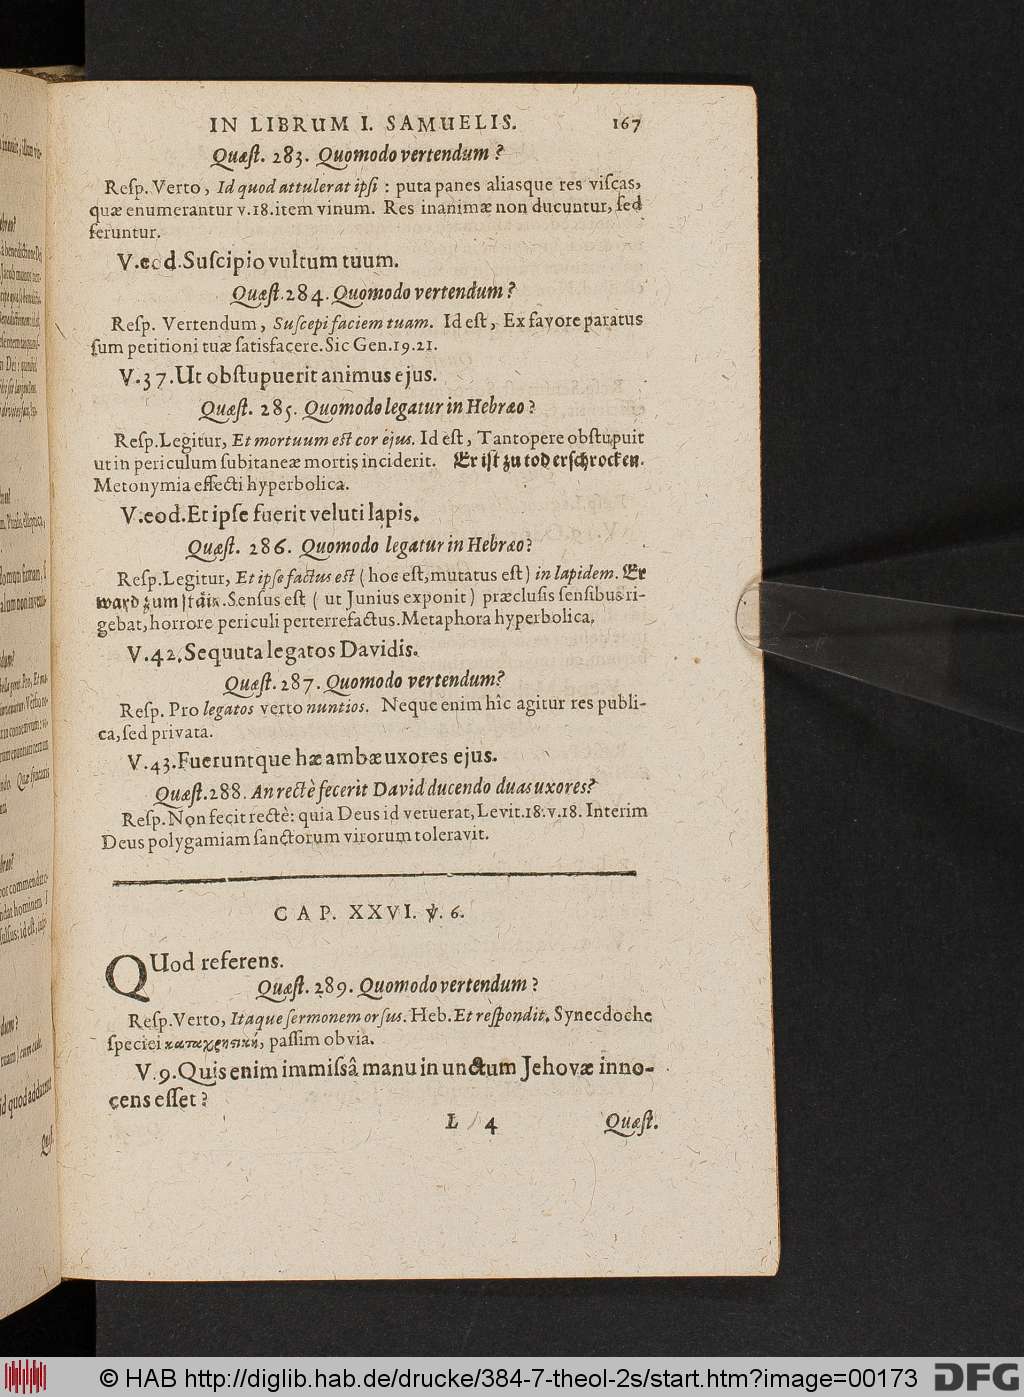 IN LIBRUM I. SAMUELIS. 167
Quæſt. 283. Quomodo vertendum?
Reſp. Verto, Id quod attulerat ipſi : puta panes aliasque res viſcas,
quæ enumerantur v.18.item vinum. Res inanimæ non ducuntur, ſed
feruntur.
V.eod.Suſcipio vultum tuum.
Quæſt.284. Quomodo vertendum?
Reſp. Vertendum, Suſcepi faciem tuam. Id eſt, Ex favore paratus
ſum petitioni tuæ ſatisfacere. Sic Gen.19.21.
V.37.Ut obſtupuerit animus ejus.
Quæſt. 285. Quomodo legatur in Hebræo?
Reſp.Legitur, Et mortuum eſt cor ejus. Id eſt, Tantopere obſtupuit
ut in periculum ſubitaneæ mortis inciderit. Er iſt zu tod erſchrocken.
Metonymia effecti hyperbolica.
V.eod.Et ipſe fuerit veluti lapis.
Quæſt. 286. Quomodo legatur in Hebræo?
Reſp.Legitur, Et ipſe factus eſt (hoc eſt, mutatus eſt) in lapidem. Er
ward zum ſtain. Senſus eſt ( ut Junius exponit) præcluſis ſenſibus ri-
gebat, horrore periculi perterrefactus. Metaphora hyperbolica.
V.42. Sequuta legatos Davidis.
Quæſt. 287. Quomodo vertendum?
Reſp. Pro legatos verto nuntios. Neque enim hîc agitur res publi-
ca, ſed privata.
V.43.Fueruntque hæ ambæ uxores ejus.
Quæſt.288. An rectè fecerit David ducendo duas uxores?
Reſp. Non fecit rectè: quia Deus id vetuerat, Levit.18. v.18. Interim
Deus polygamiam ſanctorum virorum toleravit.
CAP. XXVI. ℣. 6.
QUod referens.
Quæſt. 289. Quomodo vertendum?
Reſp.Verto, Itaque ſermonem orſus. Heb. Et reſpondit. Synecdoche
ſpeciei καταχρηστική, paſſim obvia.
V.9.Quis enim immiſsâ manu in unctum Jehovæ inno-
cens eſſet?
L 4 Quæſt.
© HAB http://diglib.hab.de/drucke/384-7-theol-2s/start.htm?image=00173 DFG